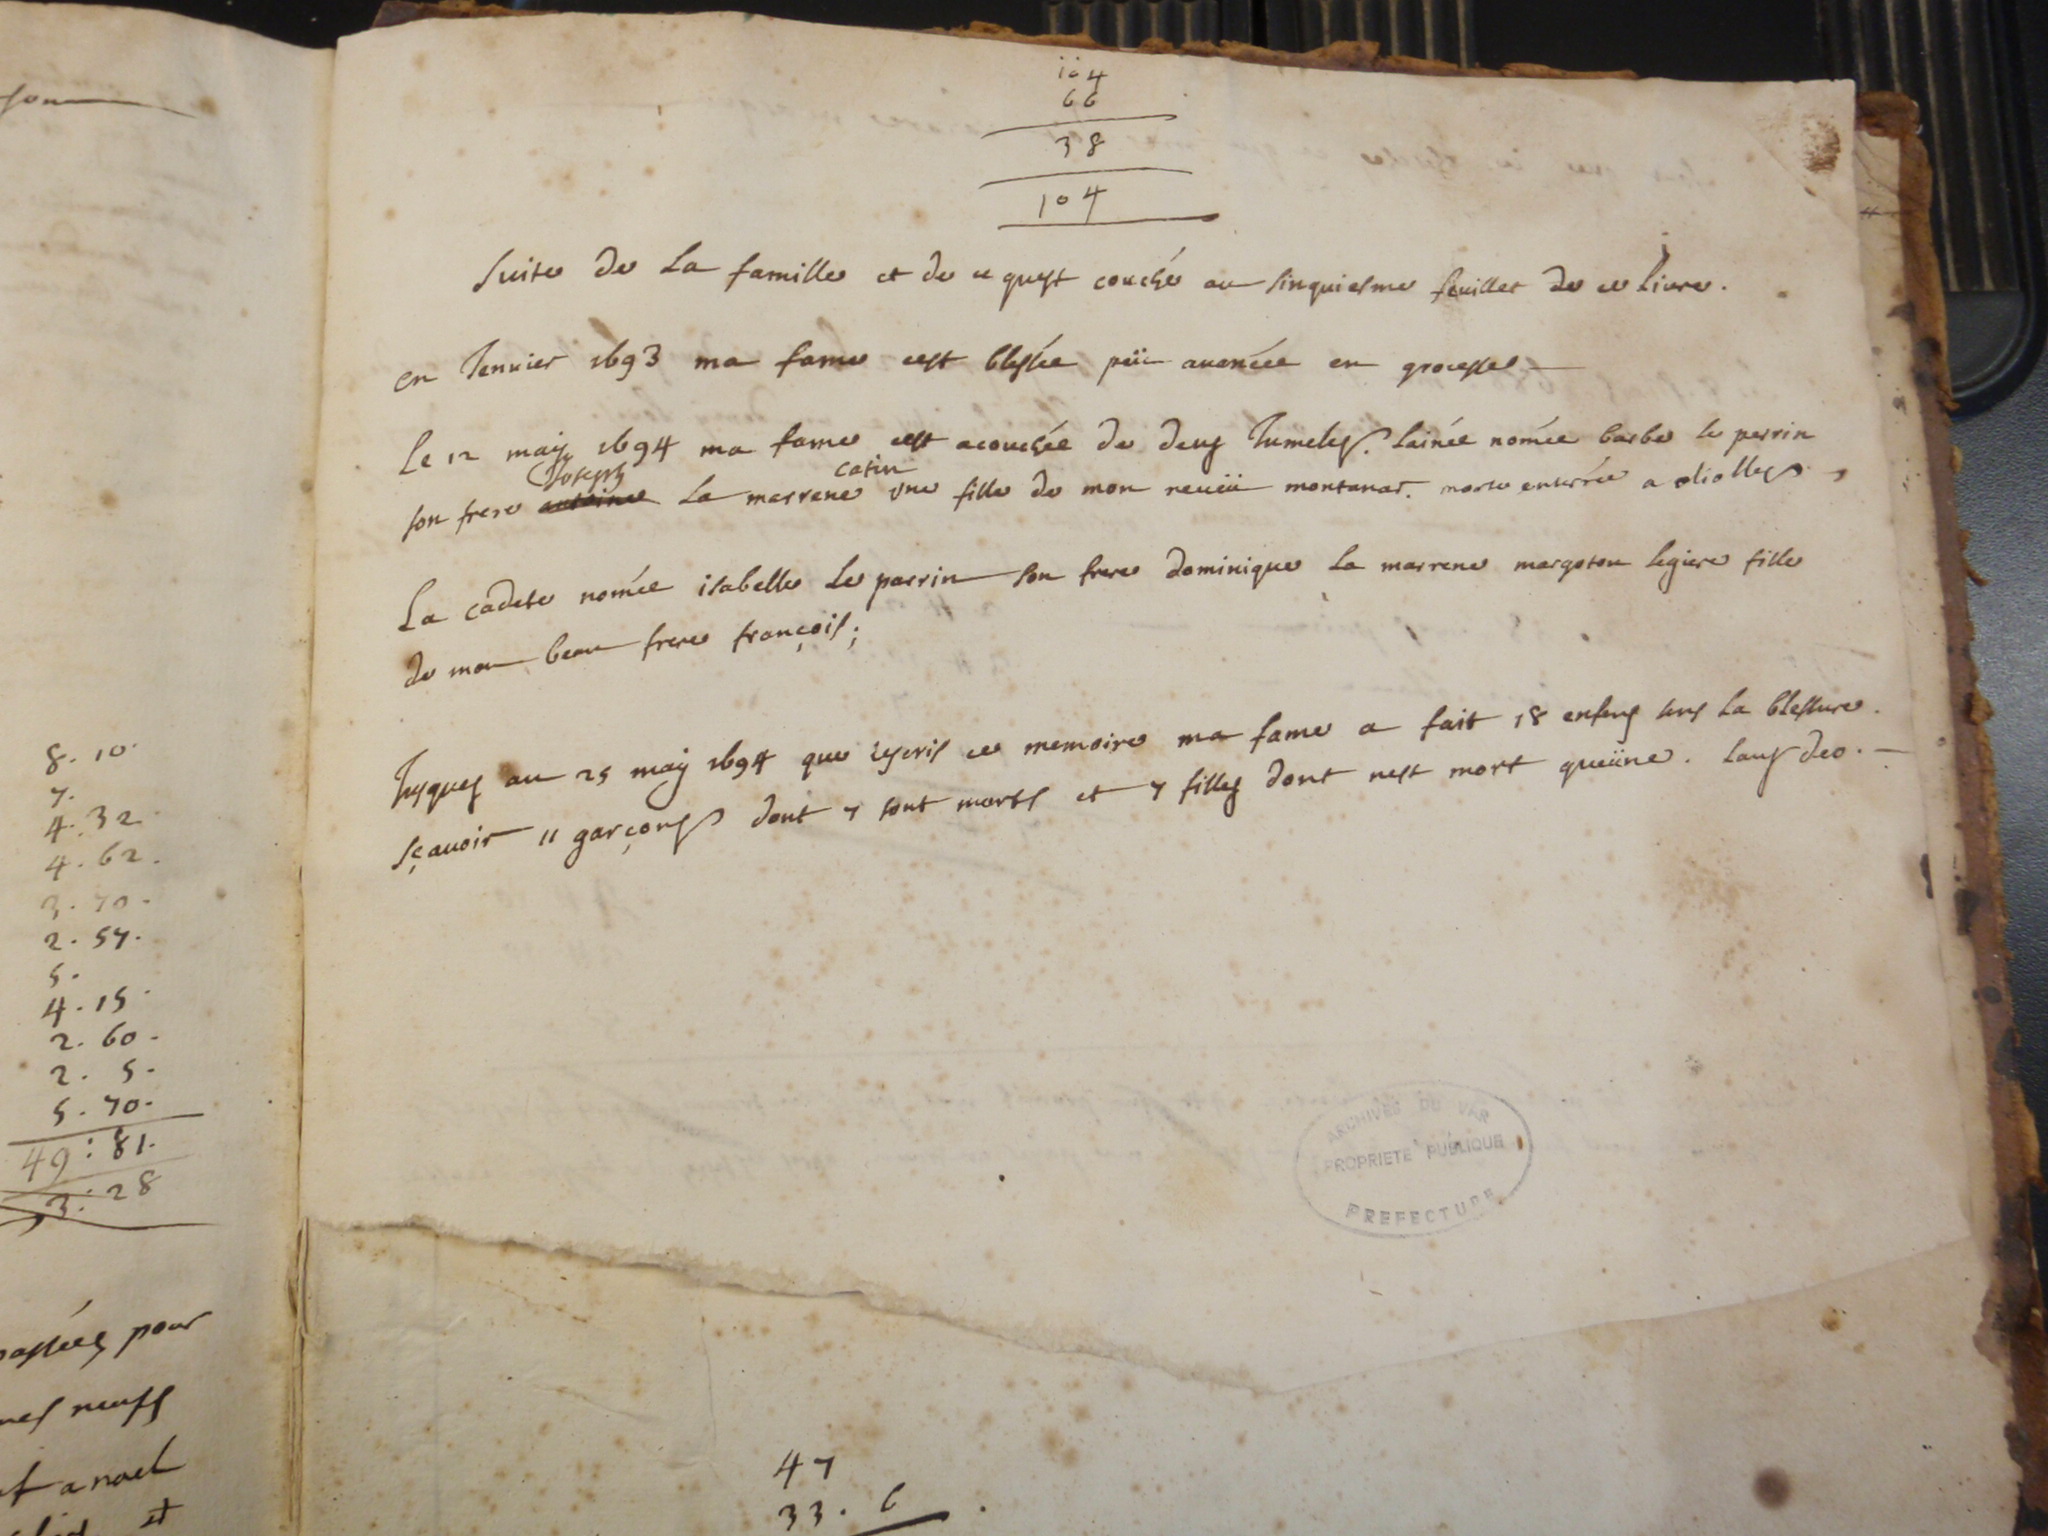 son
8. 10.
7.
4. 32
4. 62.
3. 70.
2. 57.
5.
4. 15.
2. 60.
2. 5.
5. 70.
49: 81.
3: 28
passées pour
neufs
a noel
et
104
66
38
104
suite de La famille et de ce quest couché au sinquiesme feuillet de ce livre.
en Jenvier 1693 ma fame cest blessée peü avancée en grocesse
Le 12 maÿ 1694 ma fame cest acouchée de deus Jumeles. lainée nomée barbe le perrin
Joseph catin
son frere antoine La marrene une fille de mon neveü montanar. morte enterrée a oliolles
La cadete nomée isabelle Le parrin son frere dominique La marrene margoton legiere fille
de mon beau frere françois;
Jusques au 25 maÿ 1694 que jescris ce memoire ma fame a fait 18 enfans sens La blessure.
sçavoir 11 garçons dont 7 sont morts et 7 filles dont nest mort queüne. Laus deo.
ARCHIVES DU VAR
PROPRIETE PUBLIQUE
PREFECTURE
47
33. 6